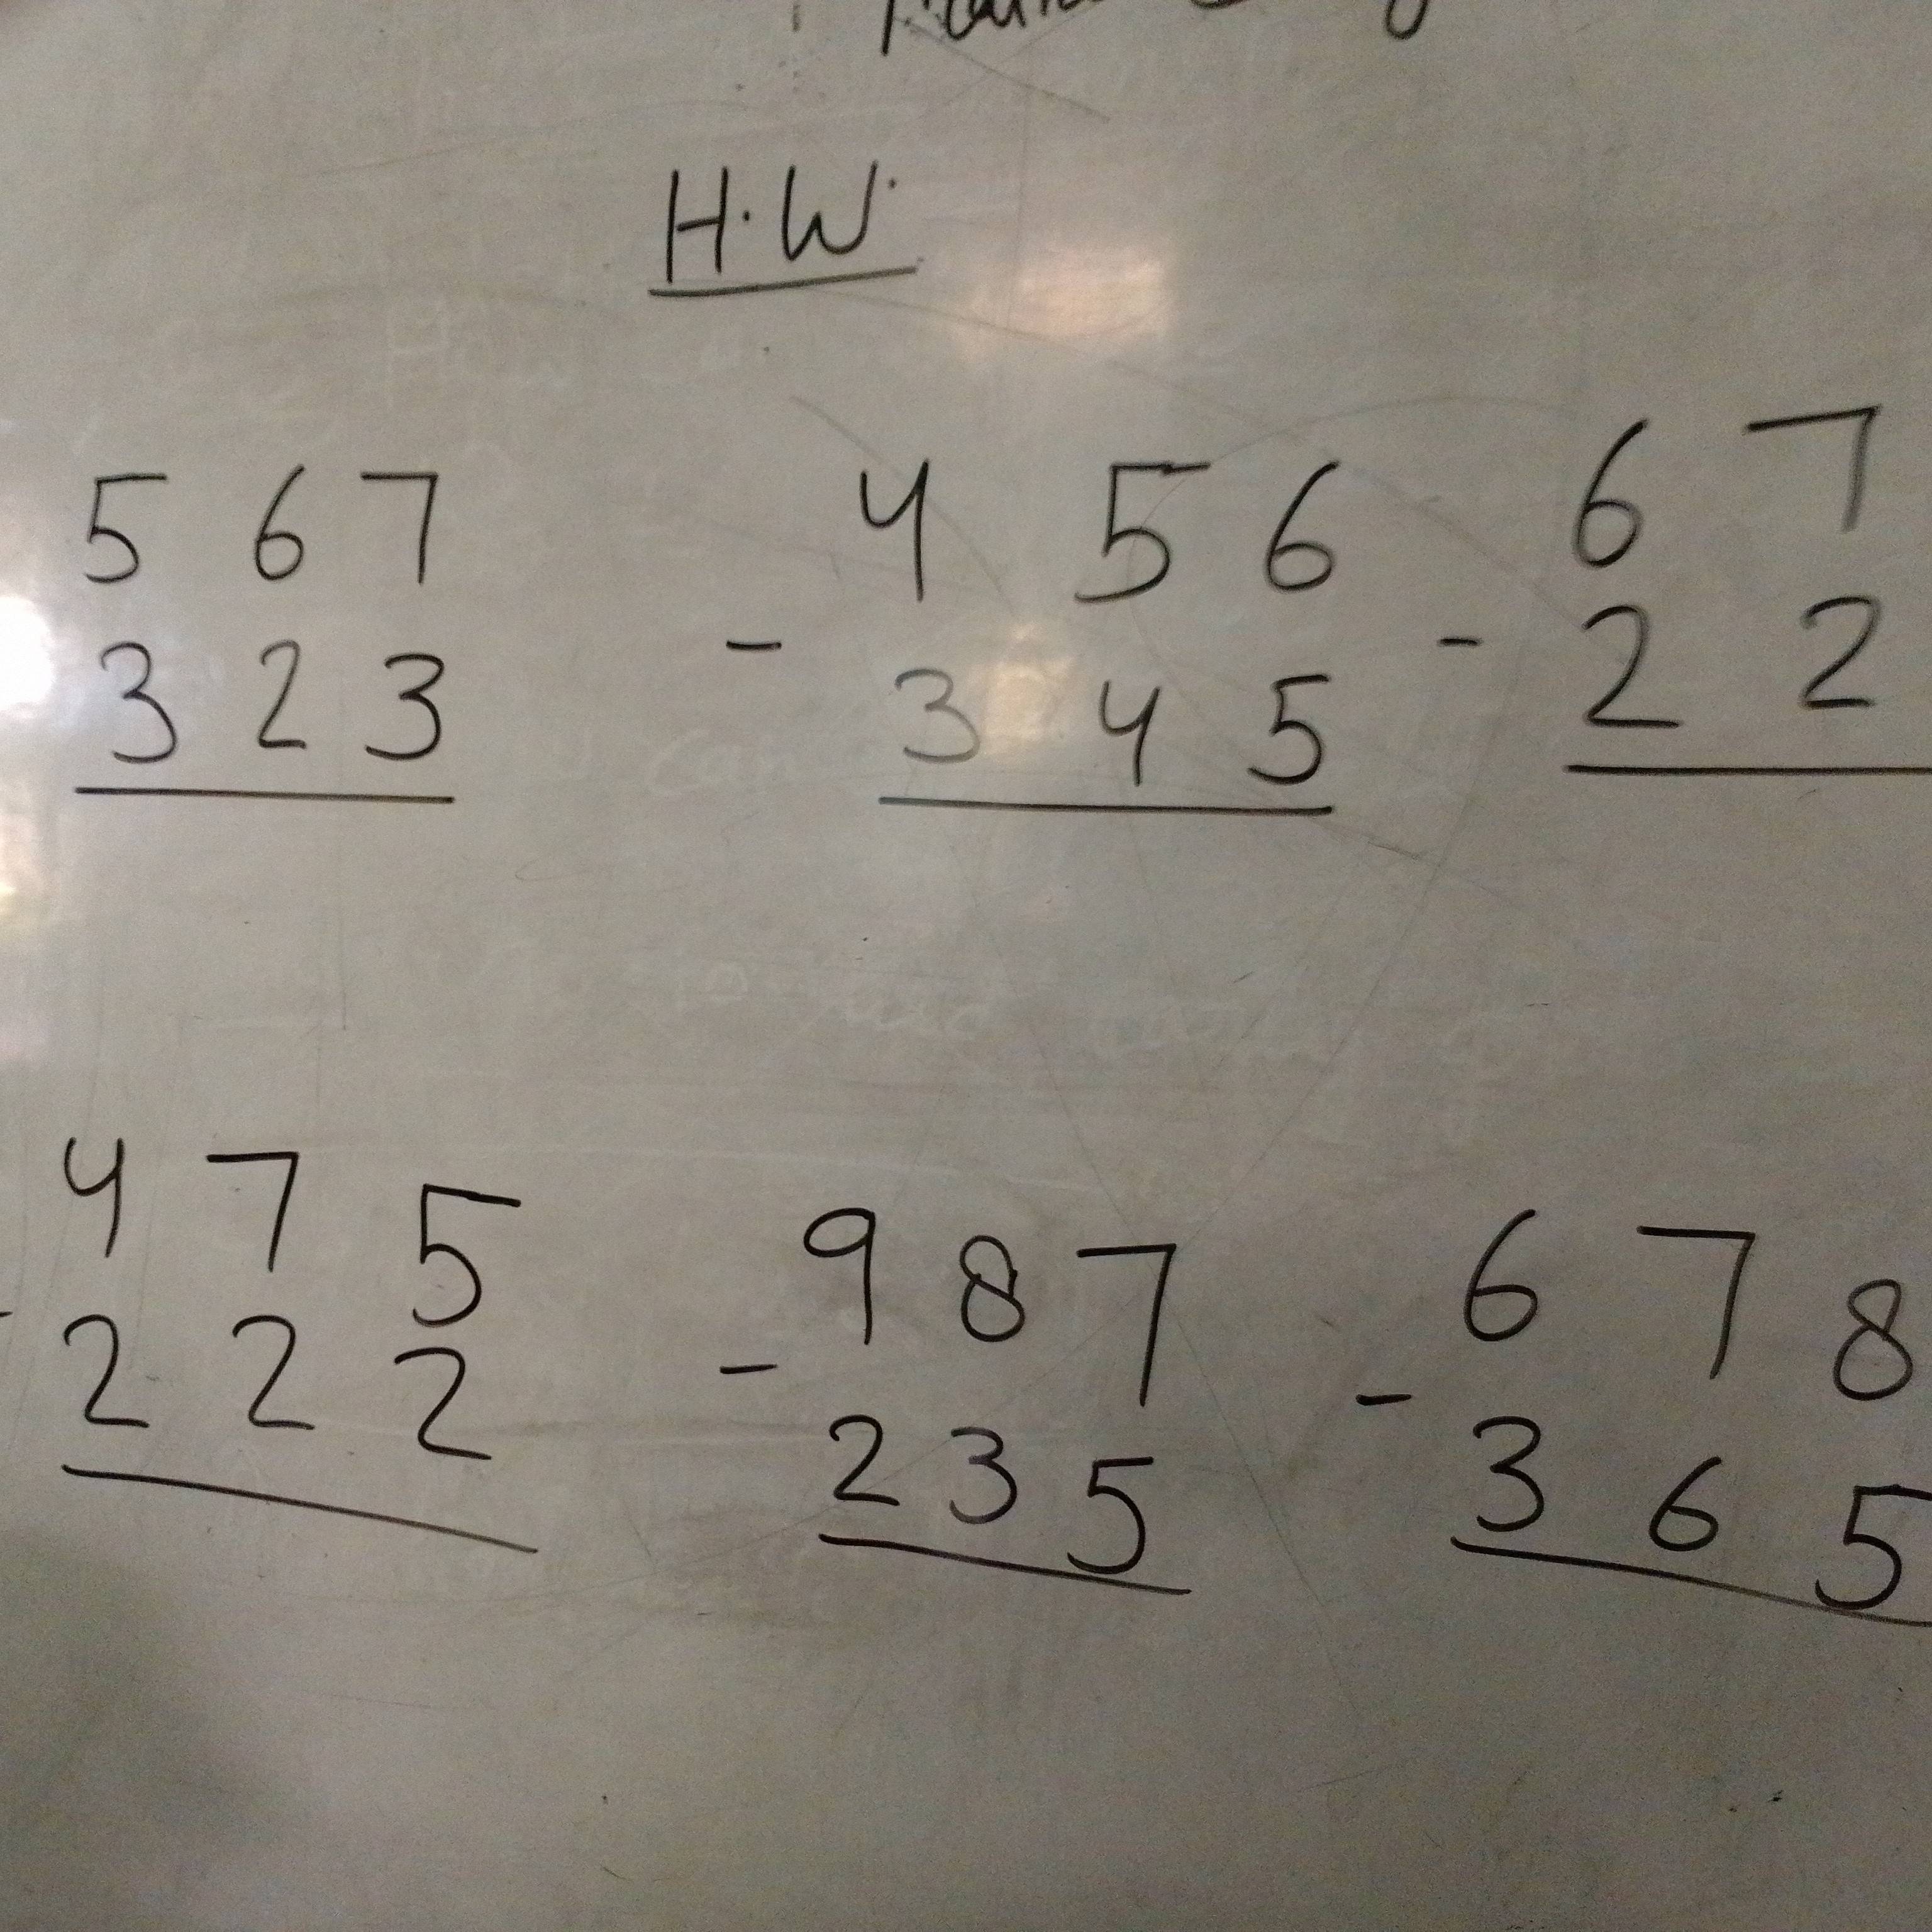 H.W.
567 - 456 - 67
323 345 22
475 - 987 - 678
- 222 235 365